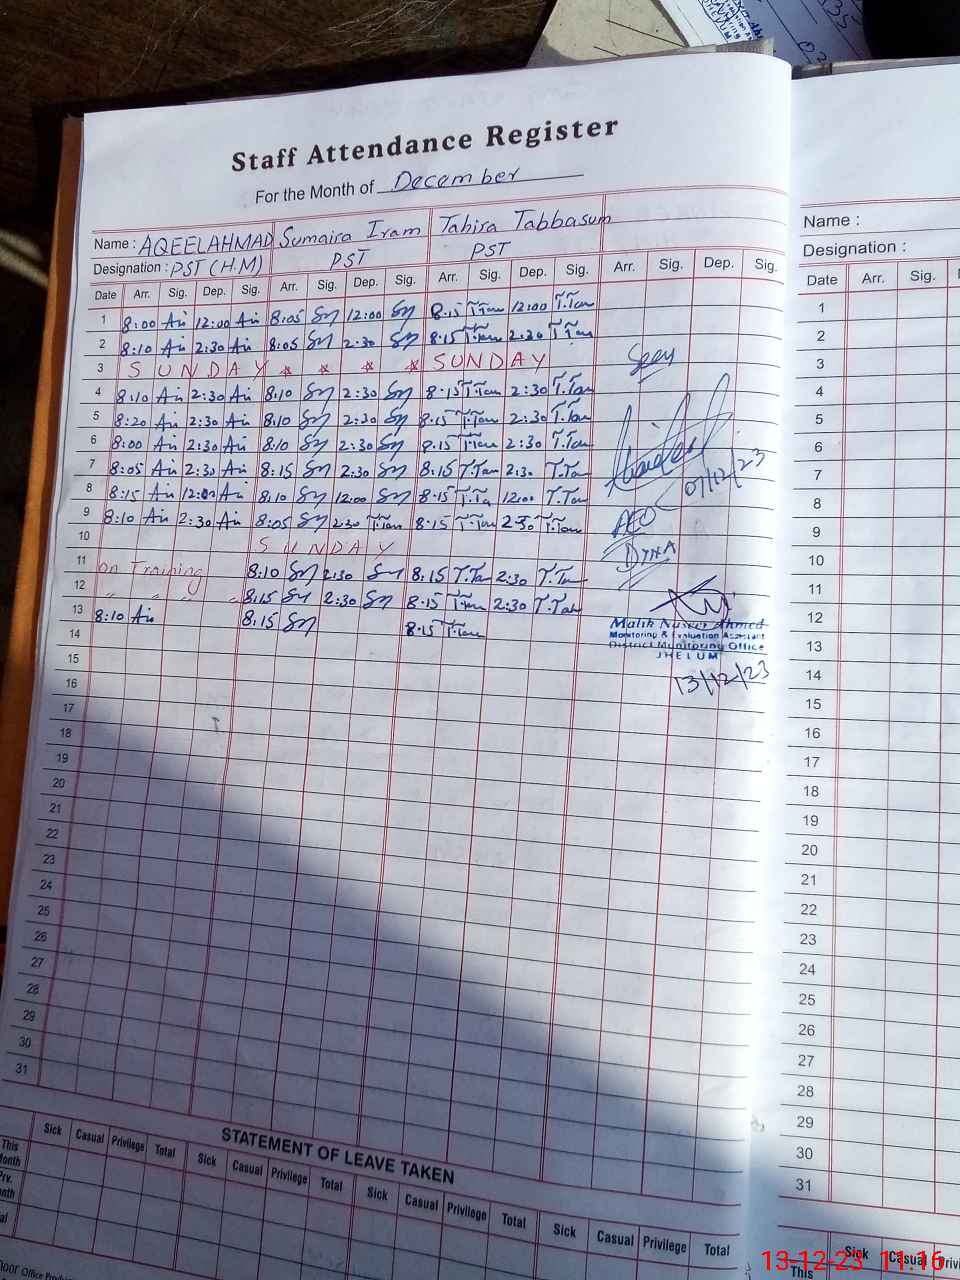 Staff Attendance Register
For the Month of December
Name : AQEELAHMAD Sumaira Iram Tahira Tabbasum
Designation : PST (H.M) PST PST
Date Arr. Sig. Dep. Sig. Arr. Sig. Dep. Sig. Arr. Sig. Dep. Sig. Arr. Sig. Dep. Sig.
1 8:00 12:00 8:05 12:00 8.15 12:00
2 8:10 2:30 8:05 2:30 8.15 2:30
3 SUNDAY * * * * SUNDAY
4 8:10 2:30 8:10 2:30 8.15 2:30
5 8:20 2:30 8:10 2:30 8.15 2:30
6 8:00 2:30 8:10 2:30 8.15 2:30
7 8:05 2:30 8:15 2:30 8:15 2:30
8 8:15 12:00 8:10 12:00 8.15 12:00
9 8:10 2:30 8:05 2:30 8.15 2:30
10 SUNDAY
11 on Training 8:10 2:30 8:15 2:30
12 " " " " 8:15 2:30 8.15 2:30
13 8:10 8:15 8.15
14
15
16
17
18
19
20
21
22
23
24
25
26
27
28
29
30
31
Seen
07/12/23
AEO
Malik Naseer Ahmed
Monitoring & Evaluation Assistant
District Monitoring Office
JHELUM
13/12/23
STATEMENT OF LEAVE TAKEN
Sick Casual Privilege Total Sick Casual Privilege Total Sick Casual Privilege Total Sick Casual Privilege Total
This
Name :
Designation :
Date Arr. Sig.
1
2
3
4
5
6
7
8
9
10
11
12
13
14
15
16
17
18
19
20
21
22
23
24
25
26
27
28
29
30
31
Sick Casual
This
13-12-23 11:16